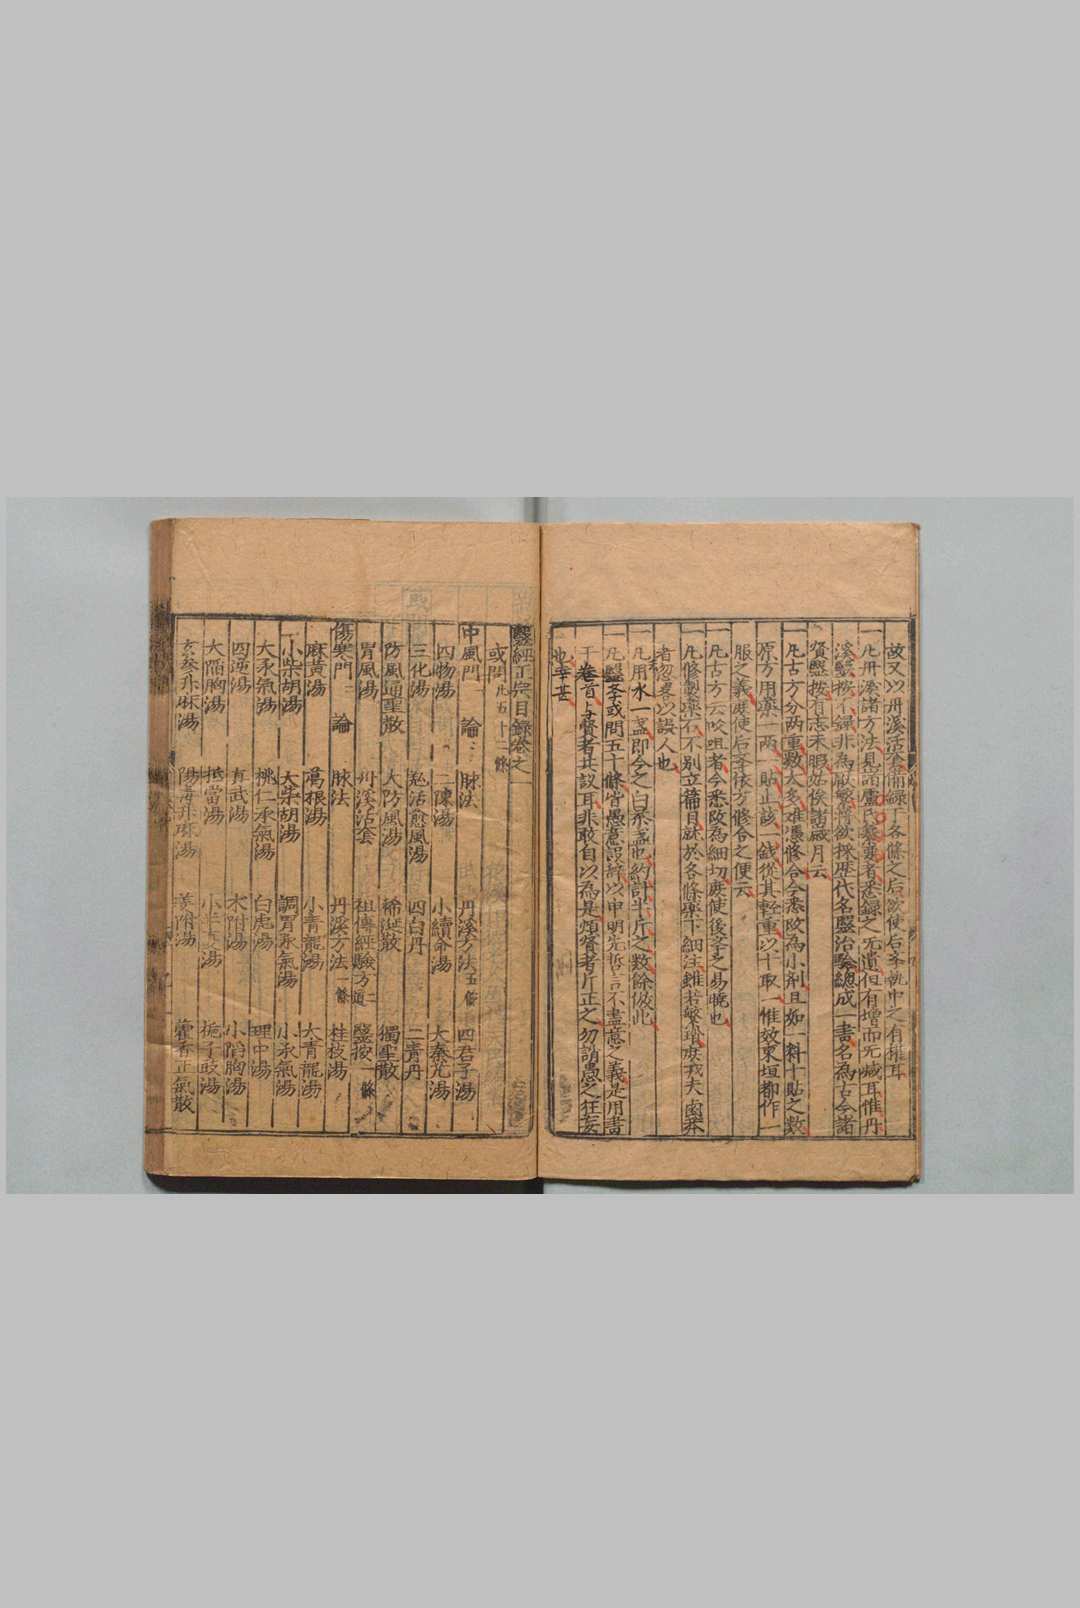 故又以丹溪活套備録于各條之后欲使后孝執中之有權耳
一凡丹溪諸方法見諸盧氏纂要者悉録之旡遺但有增而旡減耳惟丹
溪醫按不録非為厭繁将欲採歷代名醫治驗總成一書名為古今諸
賢醫按有志未暇姑俟諸歲月云
一凡古方分両重数太多难憑修合今悉改為小剤且如一料十貼之数
原方用藥一両一貼止該一錢從其輕重以十取一惟效東垣都作一
服之義庶使后孝依方修合之便云
一凡古方云㕮咀者今悉改為細切庶使後孝之易曉也
一凡修製藥石不别立篇目就於各條藥下細注雖若繁瑣庶戒夫鹵莽
者忽畧以誤人也
一凡用水一盞即今之白茶盞也約計半斤之数餘倣此
一凡醫孝或問五十條皆愚意誤辞以申明先哲言不盡意之義是用書
于卷首与賢者共議耳非敢自以為是煩賢者斤正之勿謂愚之狂妄
也幸甚
醫經正宗目録卷之一
或問凡五十二條
中風門 論 脉法 丹溪方法五條 四君子湯
四物湯 二陳湯 小續命湯 大秦艽湯
三化湯 羗活愈風湯 四白丹 二青丹
防風通聖散 大防風湯 稀涎散 獨聖散
胃風湯 丹溪活套 祖傳経驗方二道 醫按一條
傷寒門 論 脉法 丹溪方法一條 桂枝湯
麻黃湯 葛根湯 小青龍湯 大青龍湯
小柴胡湯 大柴胡湯 調胃承氣湯 小承氣湯
大承氣湯 桃仁承氣湯 白虎湯 理中湯
四逆湯 真武湯 术附湯 小陥胸湯
大陥胸湯 抵當湯 小半夏湯 梔子豉湯
玄參升麻湯 陽毒升麻湯 姜附湯 藿香正氣散